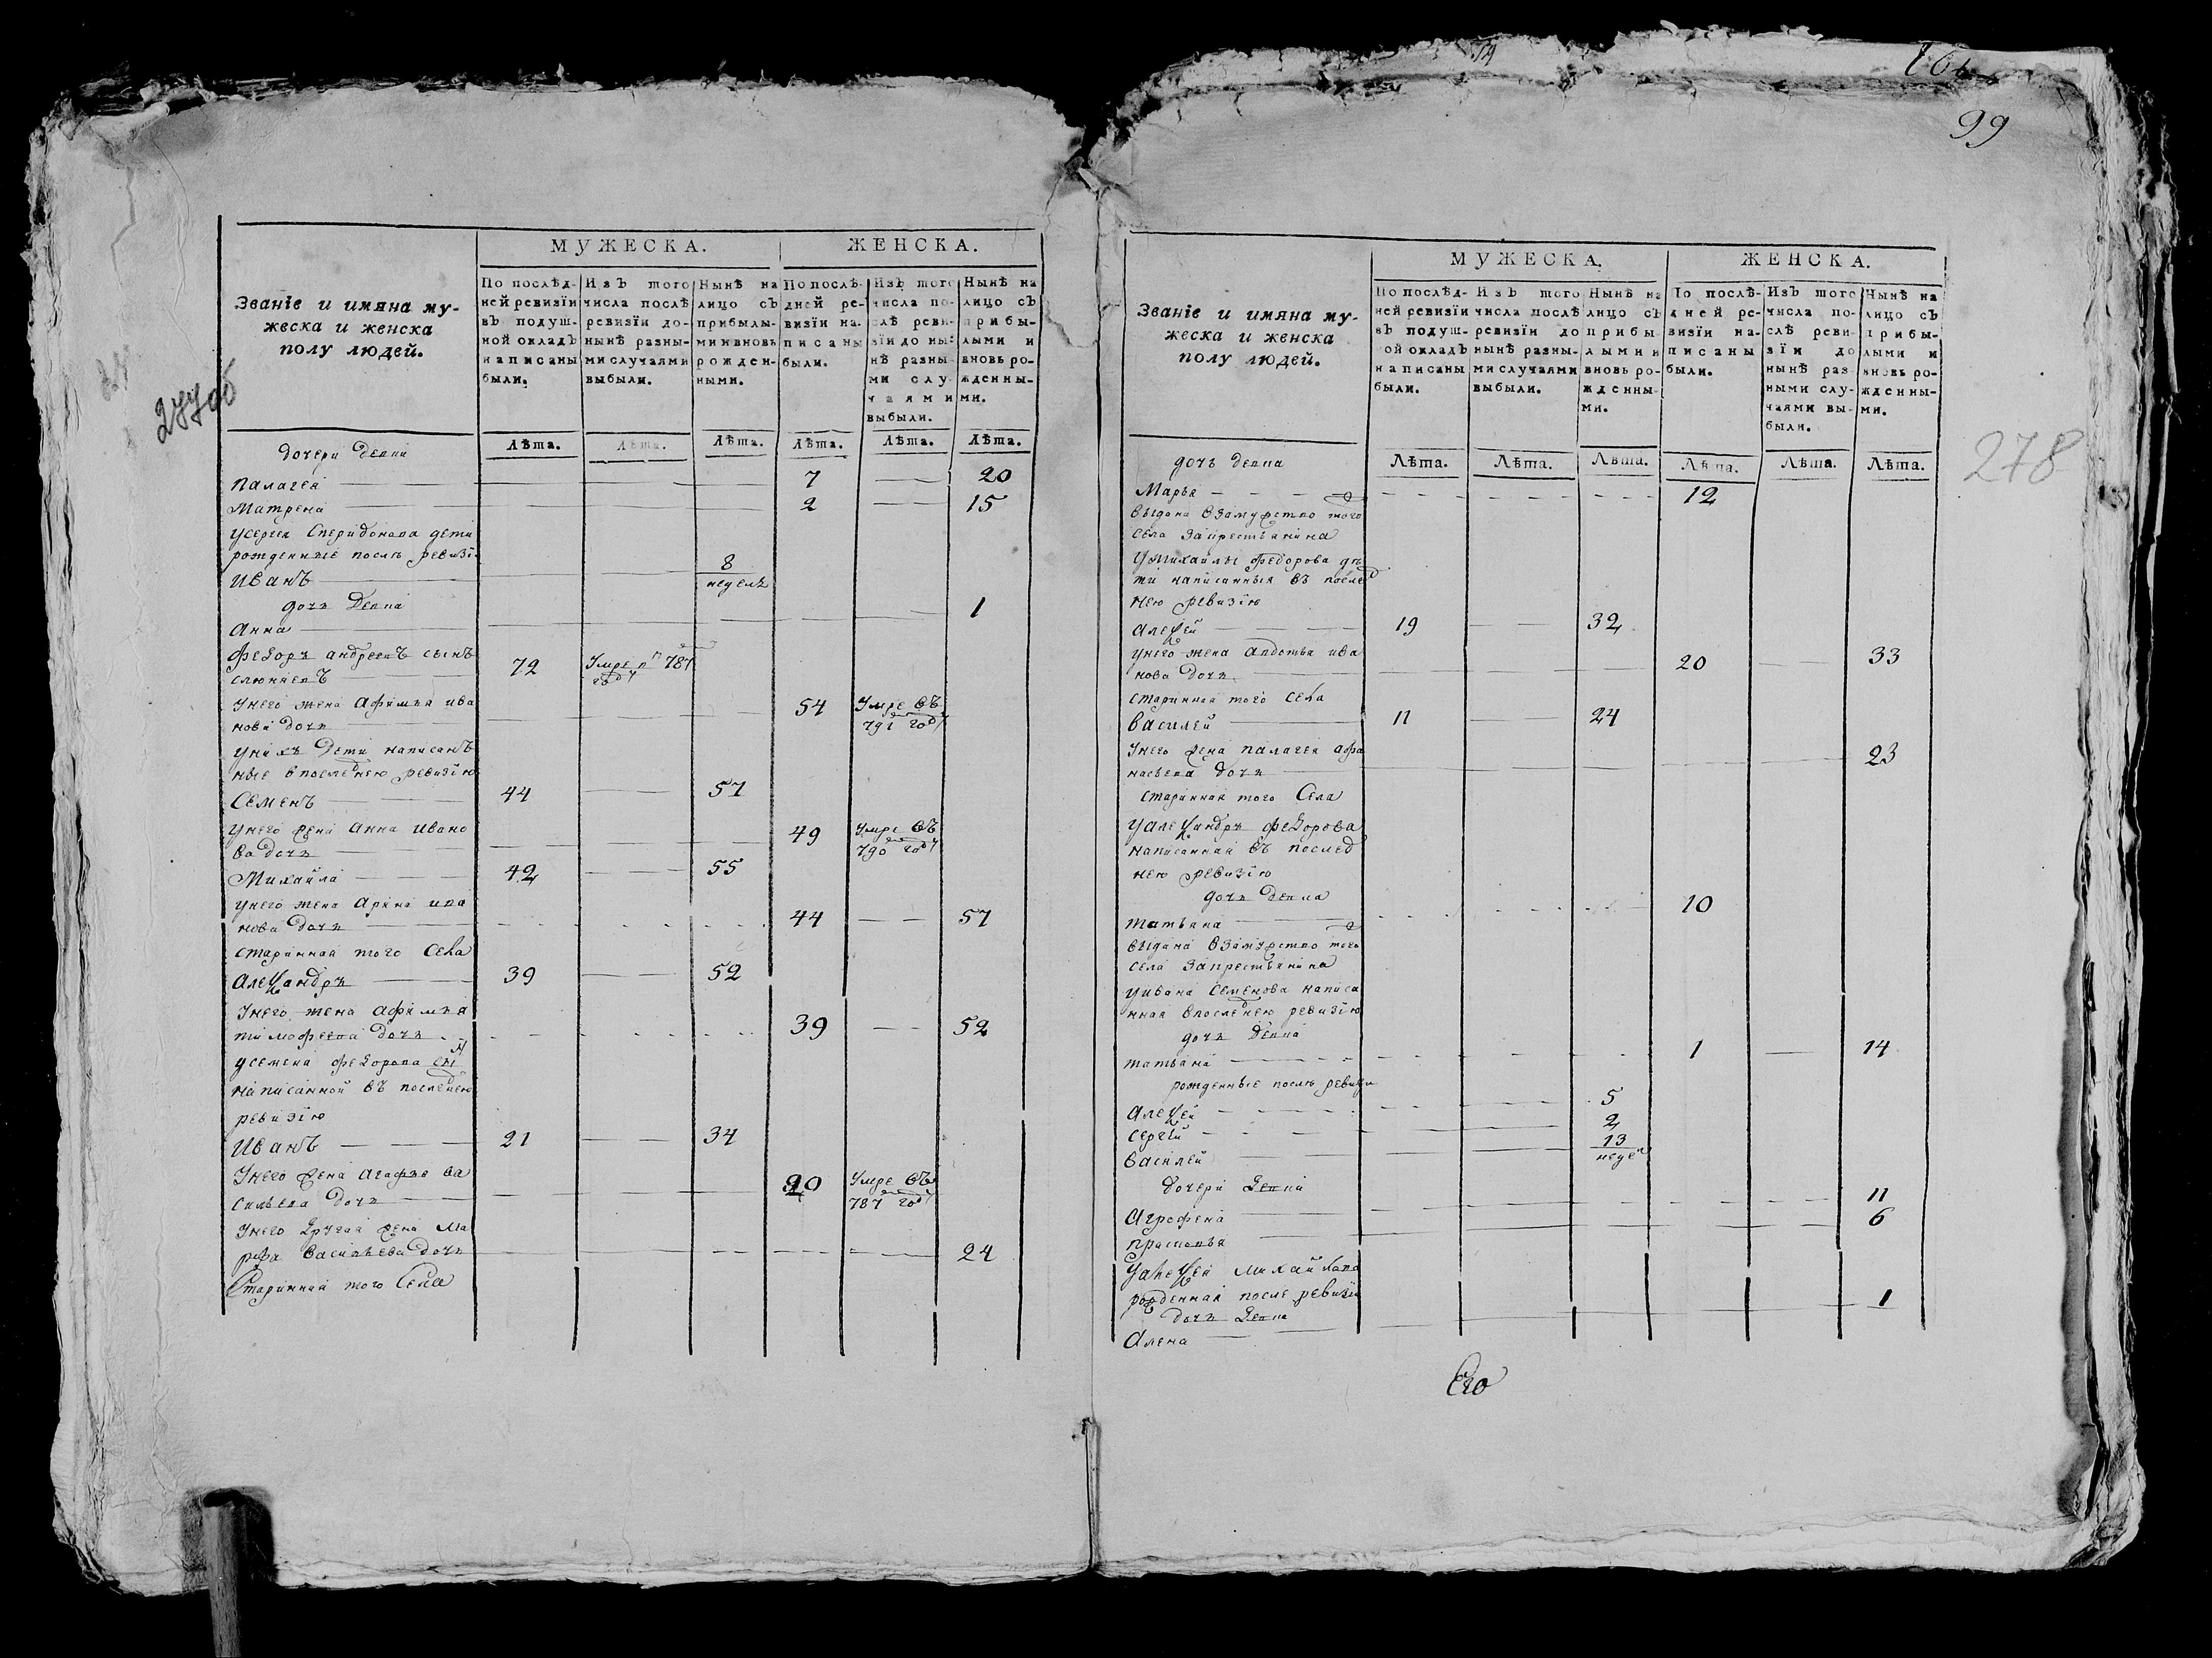 277об
МУЖЕСКА. ЖЕНСКА.
Званіе и имяна му-
жеска и женска
полу людей.
По послѣд-
ней ревизіи
въ подуш-
ной окладъ
написаны
были.
Изъ того
числа послѣ
ревизіи до-
нынѣ разны-
ми случаями
выбыли.
Нынѣ на
лицо съ
прибылы-
ми и вновь
рожден-
ными.
По послѣ-
дней ре-
визіи на-
писаны
были.
Изъ того
числа по-
слѣ реви-
зіи до ны-
нѣ разны-
ми слу-
чаями
выбыли.
Нынѣ на
лицо съ
прибы-
лыми и
вновь ро-
жденны-
ми.
Лѣта. Лѣта. Лѣта. Лѣта. Лѣта. Лѣта.
дочери девки
Палагея 7 20
Матрена 2 15
у Сергея Сперидонова дети
рожденные послѣ ревизіи
Иванъ 8 неделъ
дочь девка
Анна 1
Федоръ андреевъ сынъ
72 Умре в 787 году
У него жена Афимья ива
нова дочь 54 Умре въ 791 году
У нихъ дети написанъ
ные в последнею ревизію
Семенъ 44 57
У него жена Анна Ивано
ва дочь 49 Умре въ 790 году
Михайла 42 55
У него жена Арина ива
нова дочь 44 57
старинная того села
Алеѯандръ 39 52
У него жена афимья
тимофеева дочь 39 52
У семена федорова сынъ
написанной въ последнею
ревизію
Иванъ 21 34
У него жена Агафья ва
сильева дочь 20 Умре въ 787 году
У него другая жена Ма
рфа Васильева дочь 24
Старинная того Села
99
278
МУЖЕСКА. ЖЕНСКА.
Званіе и имяна му-
жеска и женска
полу людей.
По послѣд-
ней ревизіи
въ подуш-
ной окладъ
написаны
были.
Изъ того
числа послѣ
ревизіи до
нынѣ разны-
ми случаями
выбыли.
Нынѣ на
лицо съ
прибы
лыми и
вновь ро-
жденны-
ми.
По послѣ-
дней ре-
визіи на-
писаны
были.
Изъ того
числа по-
слѣ реви-
зіи до
нынѣ раз
ными слу-
чаями вы-
были.
Нынѣ на
лицо съ
прибы-
лыми и
вновь ро-
жденны-
ми.
Лѣта. Лѣта. Лѣта. Лѣта. Лѣта. Лѣта.
дочь девка
Марья 12
выдана взамужство того
села за крестьянина
У михайлы федорова дѣ
ти написанныя въ послед
нею ревизію
Алеѯей 19 32
У него жена Авдотья ива
нова дочь 20 33
старинная того села
Василей 11 24
У него жена палагея афа
насьева дочь 23
старинная того Села
У алеѯандръ федорова
написанная въ послед
нею ревизію
дочь девка
татьяна 10
выдана взамужство того
села за крестьянина
У ивана семенова написа
нная в последнею ревизію
дочь девка
татьяна 1 14
рожденные послѣ ревизіи
Алеѯей 5
Сергей 2
Василей 13 недел
дочери девки
Аграфена 11
Прасковья 6
У алеѯея михайлова
рожденная после ревизіи
дочь девка
Алена 1
Его